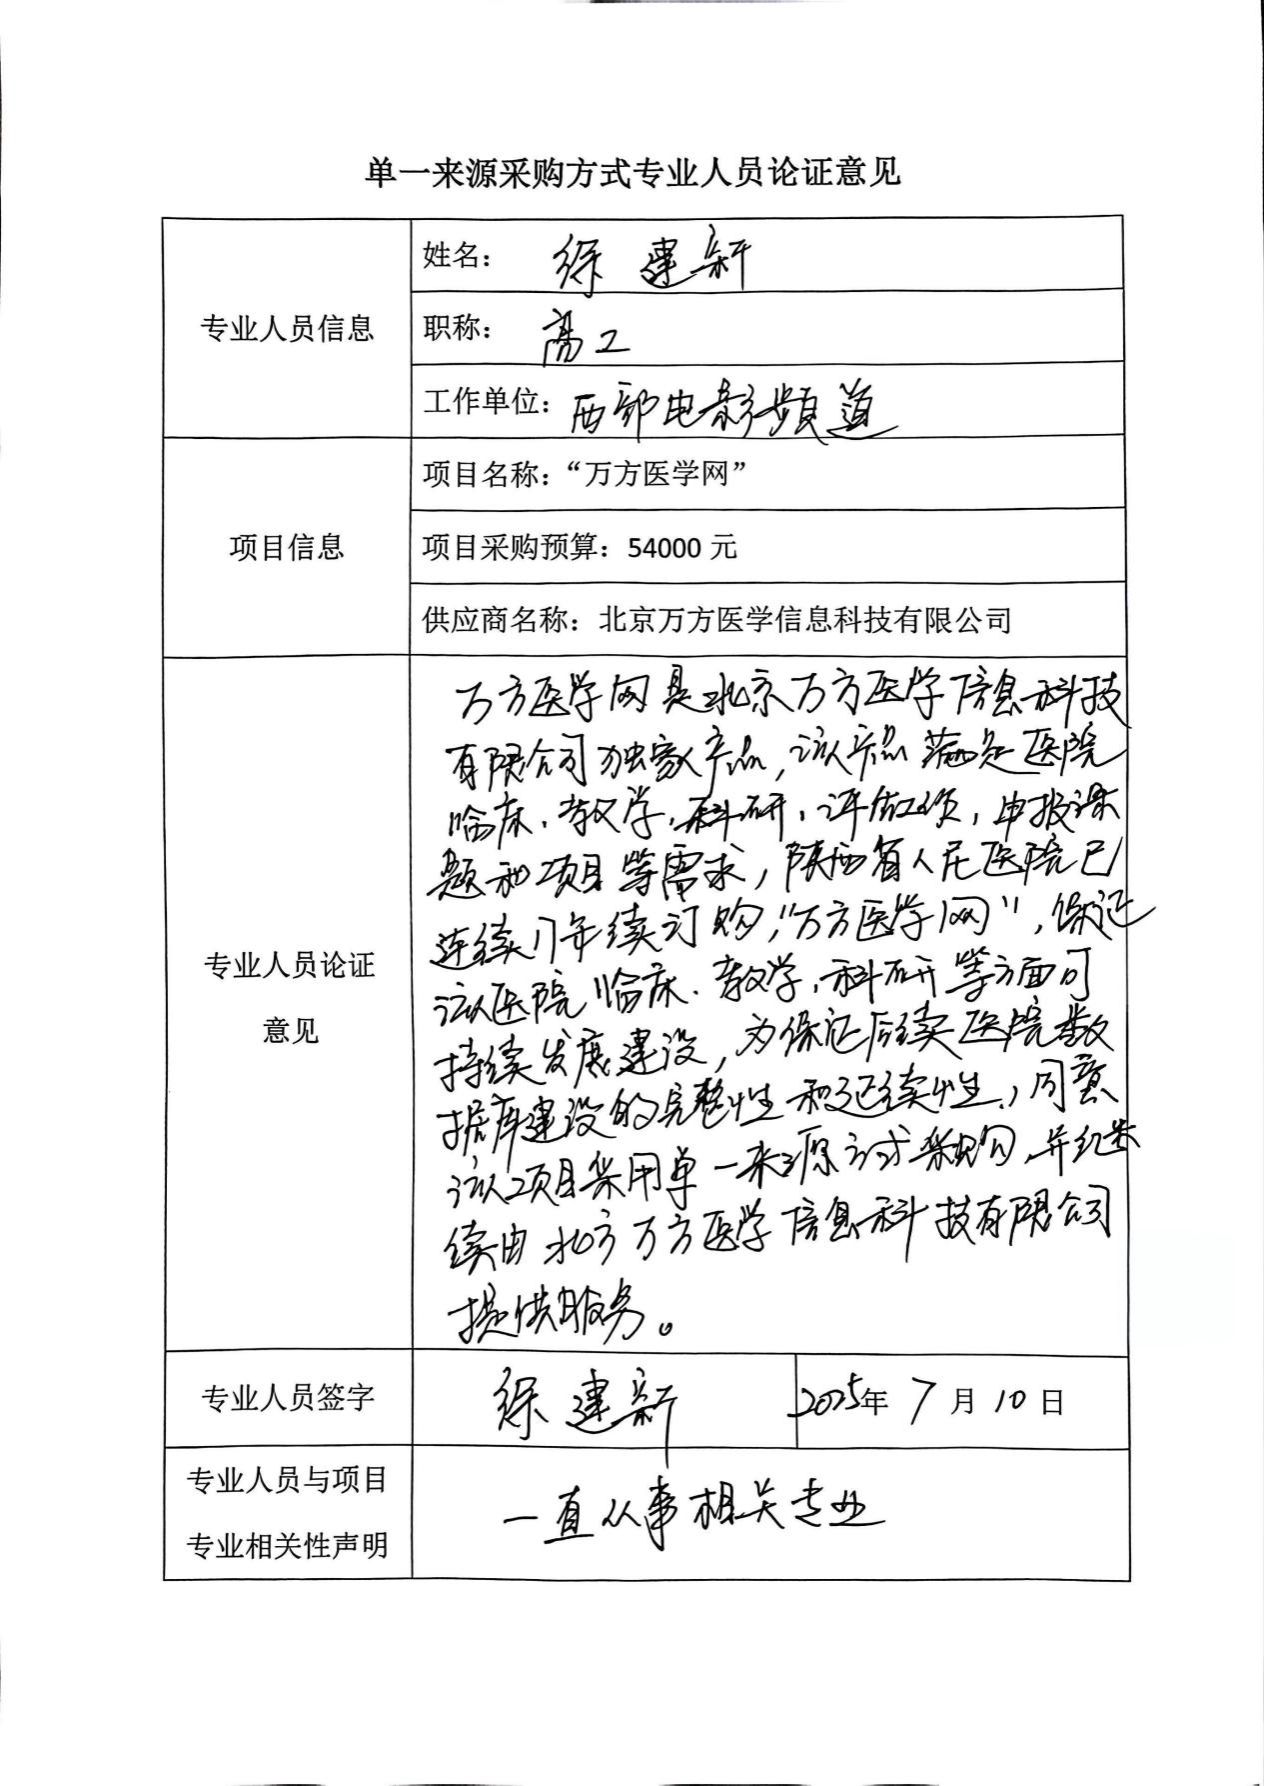 单一来源采购方式专业人员论证意见
专业人员信息
姓名： 徐建新
职称： 高工
工作单位：西部电影频道
项目信息
项目名称：“万方医学网”
项目采购预算：54000 元
供应商名称：北京万方医学信息科技有限公司
专业人员论证
意见
万方医学网是北京万方医学信息科技
有限公司独家产品，该产品满足医院
临床、教学、科研、评估工作，申报课
题和项目等需求，陕西省人民医院已
连续几年续订购“万方医学网”，保证
该医院临床、教学、科研等方面可
持续发展建设，为保证后续医院数
据库建设的完整性和延续性，同意
该项目采用单一来源方式采购，并继
续由北京万方医学信息科技有限公司
提供服务。
专业人员签字
徐建新
2025年 7 月 10 日
专业人员与项目
专业相关性声明
一直从事相关专业